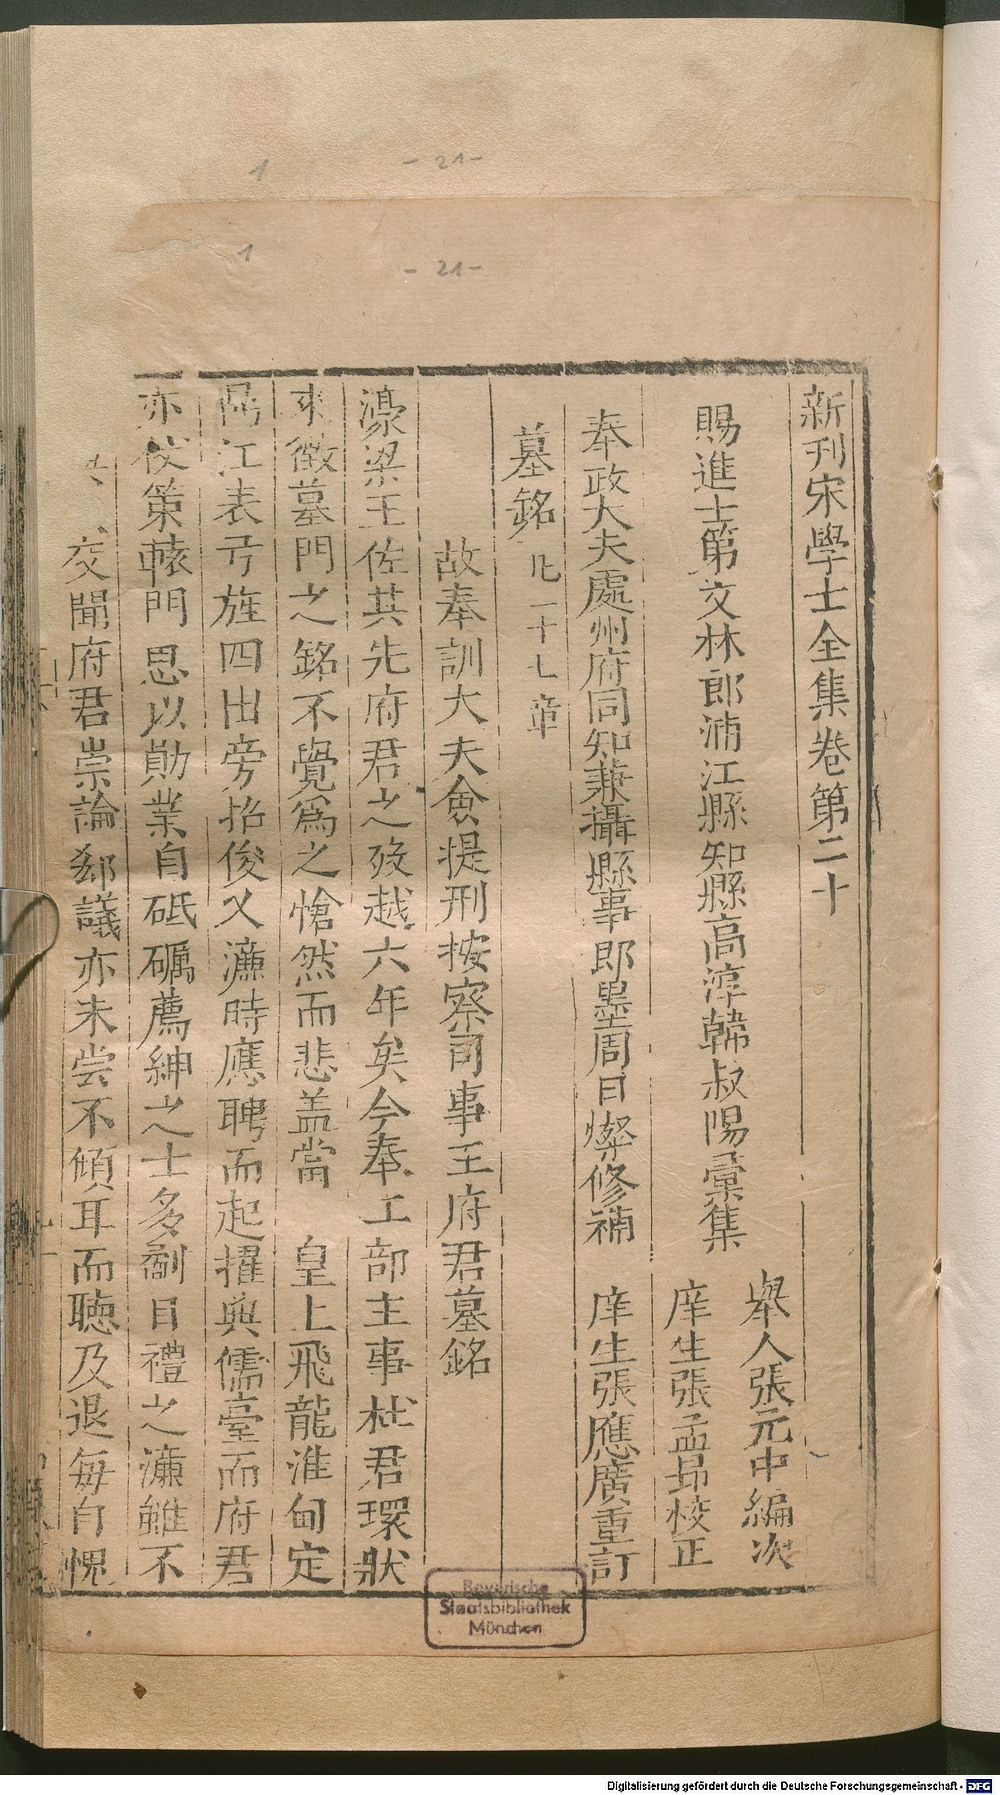 1
- 21 -
1
- 21 -
新刊宋學士全集卷第二十
賜進士第文林郎浦江縣知縣高淳韓叔陽彙集
舉人張元中編次
庠生張孟昻校正
奉政大夫處州府同知兼攝縣事郎墨周日燦修補
庠生張應廣重訂
墓銘 凡一十七章
故奉訓大夫僉提刑按察司事王府君墓銘
濠梁王佐其先府君之歿越六年矣今奉工部主事杜君環狀
來徵墓門之銘不覺爲之愴然而悲盖當 皇上飛龍淮甸定
江表弓旌四出旁招俊乂濂時應聘而起擢典儒臺而府君
亦仗策轅門思以勛業自砥礪薦紳之士多刮目禮之濂雖不
交聞府君崇論郄議亦未嘗不傾耳而聽及退每自愧
Bayerische
Staatsbibliothek
München
Digitalisierung gefördert durch die Deutsche Forschungsgemeinschaft - DFG